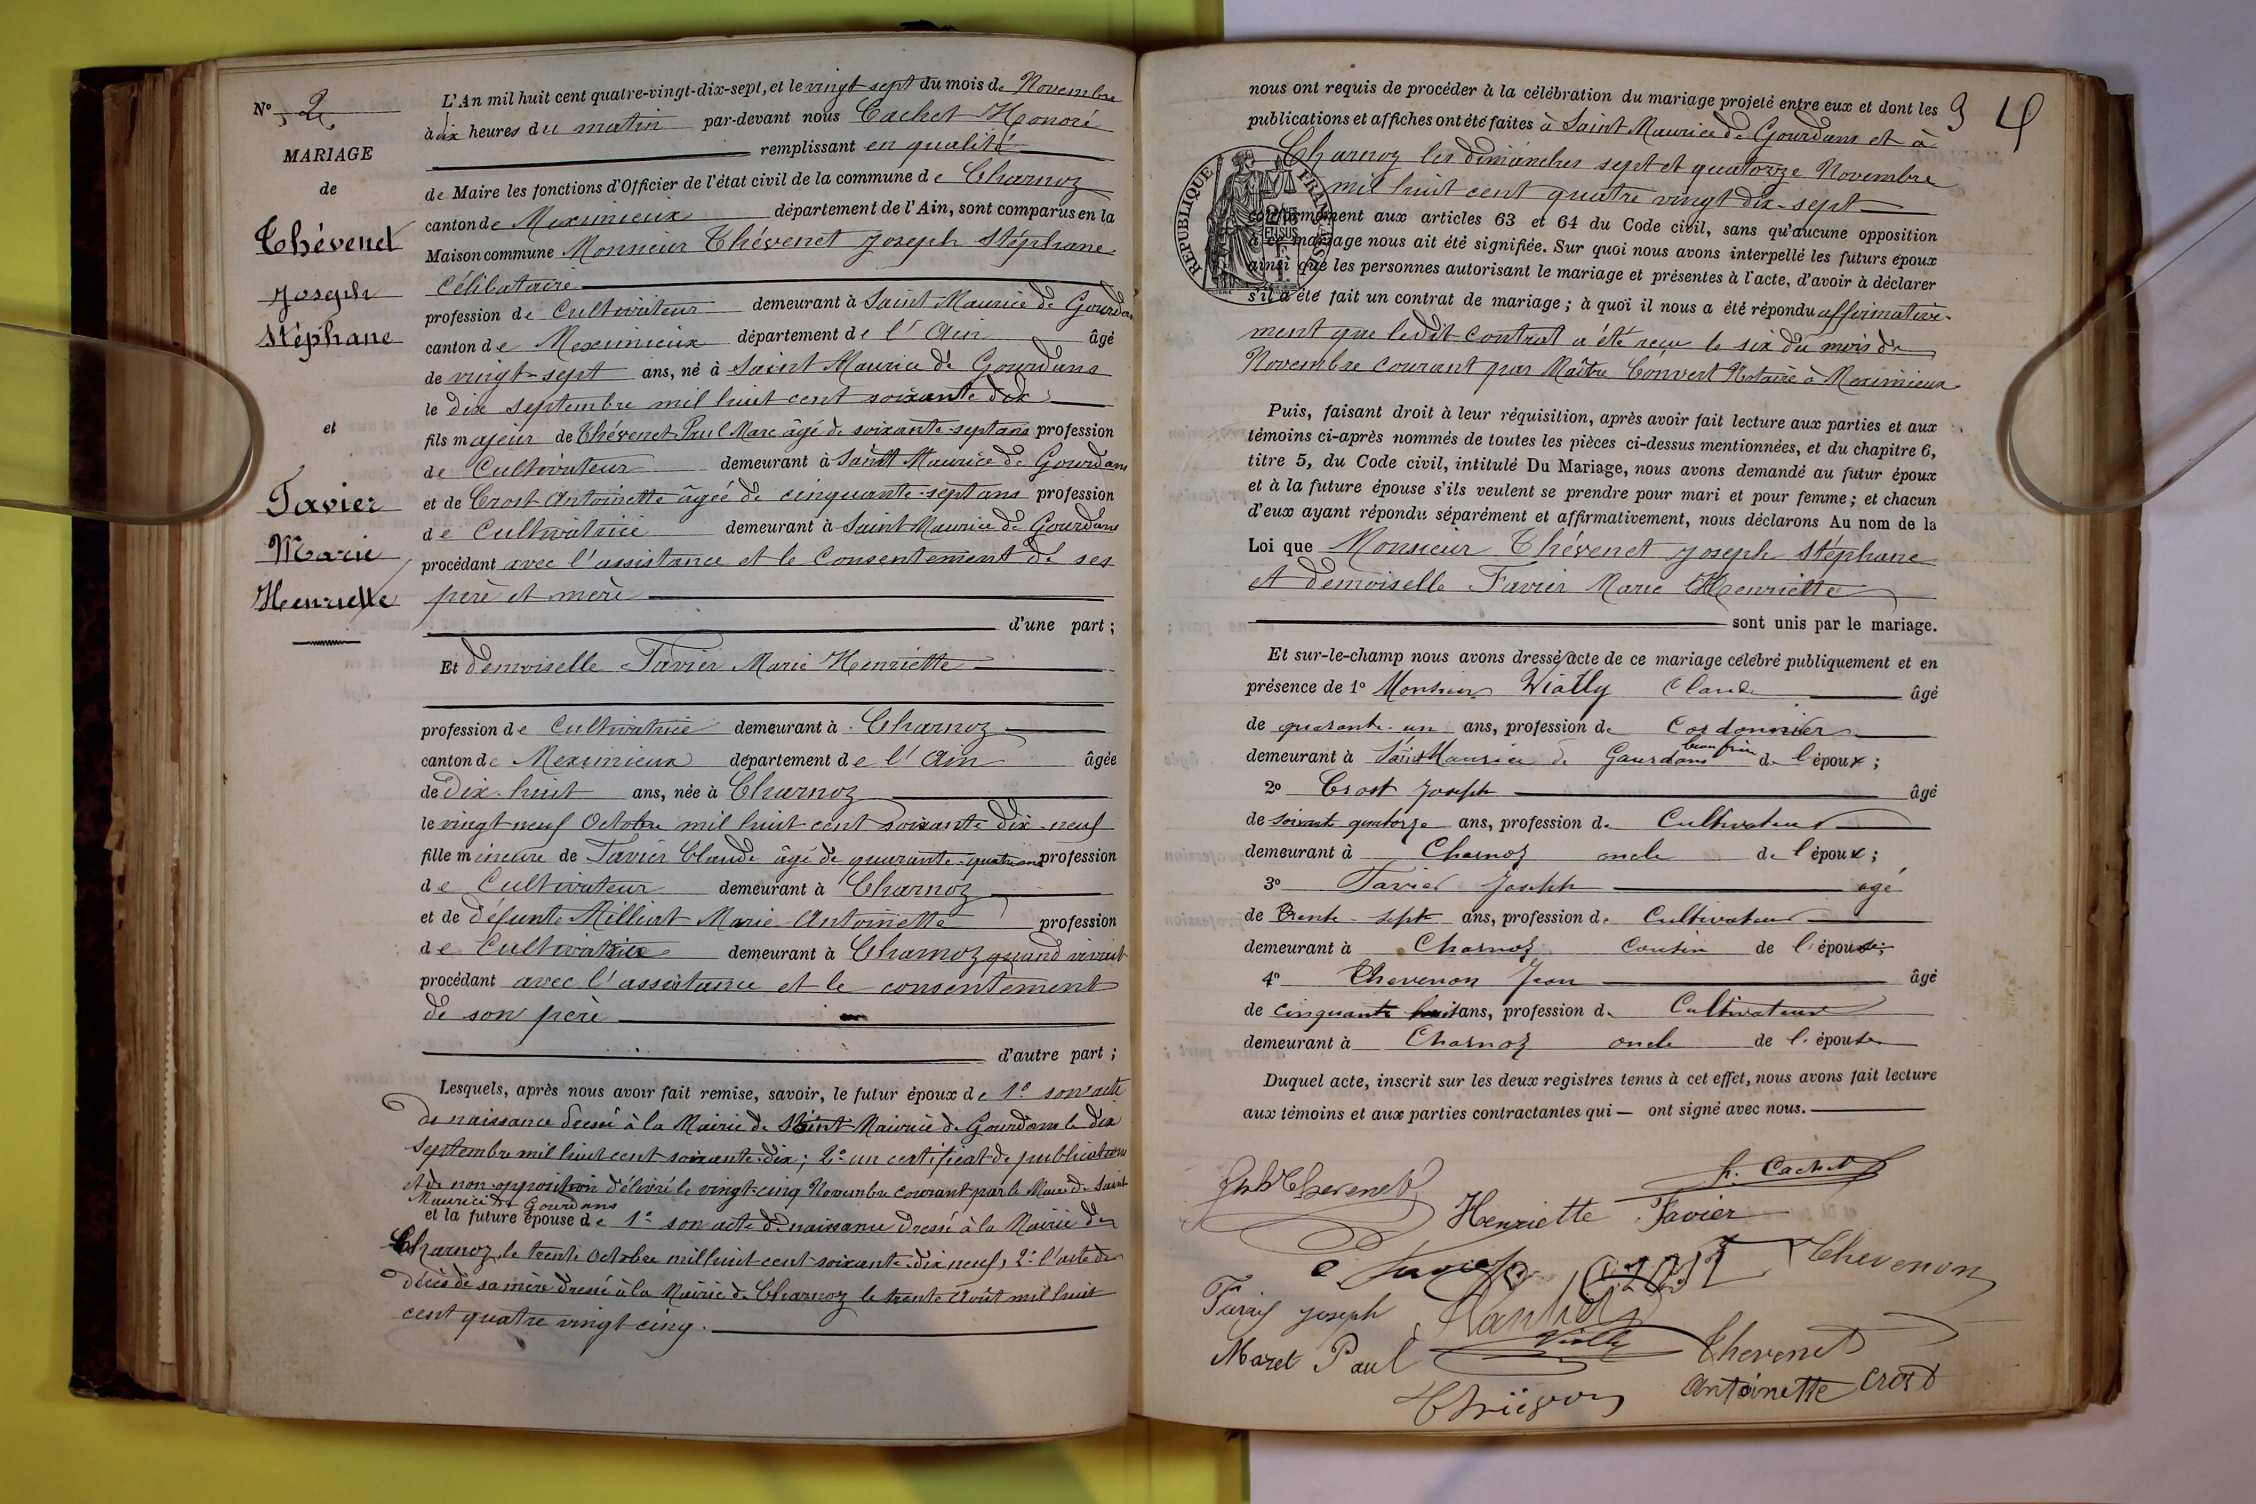 N° 2
MARIAGE
de
Thévenet
Joseph
Stéphane
et
Favier
Marie
Henriette
L'An mil huit cent quatre-vingt-dix-sept, et le vingt sept du mois de Novembre
à dix heures du matin par-devant nous Cachet Honoré
remplissant en qualité
de Maire les fonctions d'Officier de l'état civil de la commune de Charnoz
canton de Meximieux département de l'Ain, sont comparus en la
Maison commune Monsieur Thévenet Joseph Stéphane
Célibataire
profession de Cultivateur demeurant à Saint Maurice de Gourdans
canton de Meximieux département de l'Ain âgé
de vingt-sept ans, né à Saint Maurice de Gourdans
le dix septembre mil huit cent soixante dix
fils majeur de Thévenet Paul Marc âgé de soixante-sept ans profession
de Cultivateur demeurant à Saint Maurice de Gourdans
et de Crost Antoinette âgée de cinquante-sept ans profession
de Cultivatrice demeurant à Saint Maurice de Gourdans
procédant avec l'assistance et le consentement de ses
père et mère
d'une part ;
Et demoiselle Favier Marie Henriette
profession de Cultivatrice demeurant à Charnoz
canton de Meximieux département de l'Ain âgée
de dix-huit ans, née à Charnoz
le vingt neuf Octobre mil huit cent soixante dix-neuf
fille mineure de Favier Claude âgé de quarante-quatre ans profession
de Cultivateur demeurant à Charnoz
et de défunte Milliat Marie Antoinette profession
de Cultivatrice demeurant à Charnoz quand vivait
procédant avec l'assistance et le consentement
de son père
d'autre part ;
Lesquels, après nous avoir fait remise, savoir, le futur époux de 1° son acte
de naissance dressé à la Mairie de Saint Maurice de Gourdans le dix
septembre mil huit cent soixante-dix ; 2° un certificat de publications
et de non opposition délivré le vingt-cinq Novembre courant par le Maire de Saint
Maurice de Gourdans
et la future épouse de 1° son acte de naissance dressé à la Mairie de
Charnoz, le trente Octobre mil huit cent soixante-dix neuf, 2° l'acte de
décès de sa mère dressé à la Mairie de Charnoz le trente Août mil huit
cent quatre vingt cinq.
nous ont requis de procéder à la célébration du mariage projeté entre eux et dont les
publications et affiches ont été faites à Saint Maurice de Gourdans et à
Charnoz les dimanches sept et quatorze Novembre
mil huit cent quatre vingt dix-sept
conformément aux articles 63 et 64 du Code civil, sans qu'aucune opposition
à ce mariage nous ait été signifiée. Sur quoi nous avons interpellé les futurs époux
ainsi que les personnes autorisant le mariage et présentes à l'acte, d'avoir à déclarer
s'il a été fait un contrat de mariage ; à quoi il nous a été répondu affirmative-
ment que ledit contrat a été reçu le six du mois de
Novembre courant par Maître Convert Notaire à Meximieux
3 4
RÉPUBLIQUE FRANÇAISE
Puis, faisant droit à leur réquisition, après avoir fait lecture aux parties et aux
témoins ci-après nommés de toutes les pièces ci-dessus mentionnées, et du chapitre 6,
titre 5, du Code civil, intitulé Du Mariage, nous avons demandé au futur époux
et à la future épouse s'ils veulent se prendre pour mari et pour femme ; et chacun
d'eux ayant répondu séparément et affirmativement, nous déclarons Au nom de la
Loi que Monsieur Thévenet Joseph Stéphane
et demoiselle Favier Marie Henriette
sont unis par le mariage.
Et sur-le-champ nous avons dressé acte de ce mariage célébré publiquement et en
présence de 1° Monsieur Vially Claude âgé
de quarante-un ans, profession de Cordonnier
demeurant à Saint Maurice de Gourdans beau frère de l'époux ;
2° Crost Joseph âgé
de soixante quatorze ans, profession de Cultivateur
demeurant à Charnoz oncle de l'époux ;
3° Favier Joseph âgé
de trente-sept ans, profession de Cultivateur
demeurant à Charnoz cousin de l'épouse ;
4° Thevenon Jean âgé
de cinquante huit ans, profession de Cultivateur
demeurant à Charnoz oncle de l'épouse
Duquel acte, inscrit sur les deux registres tenus à cet effet, nous avons fait lecture
aux témoins et aux parties contractantes qui — ont signé avec nous.
Jph Thevenet h. Cachet
Henriette Favier
C Favier Crost Thevenon
Favier Joseph
Vially
Maret Paul Thevenet
Antoinette Crost